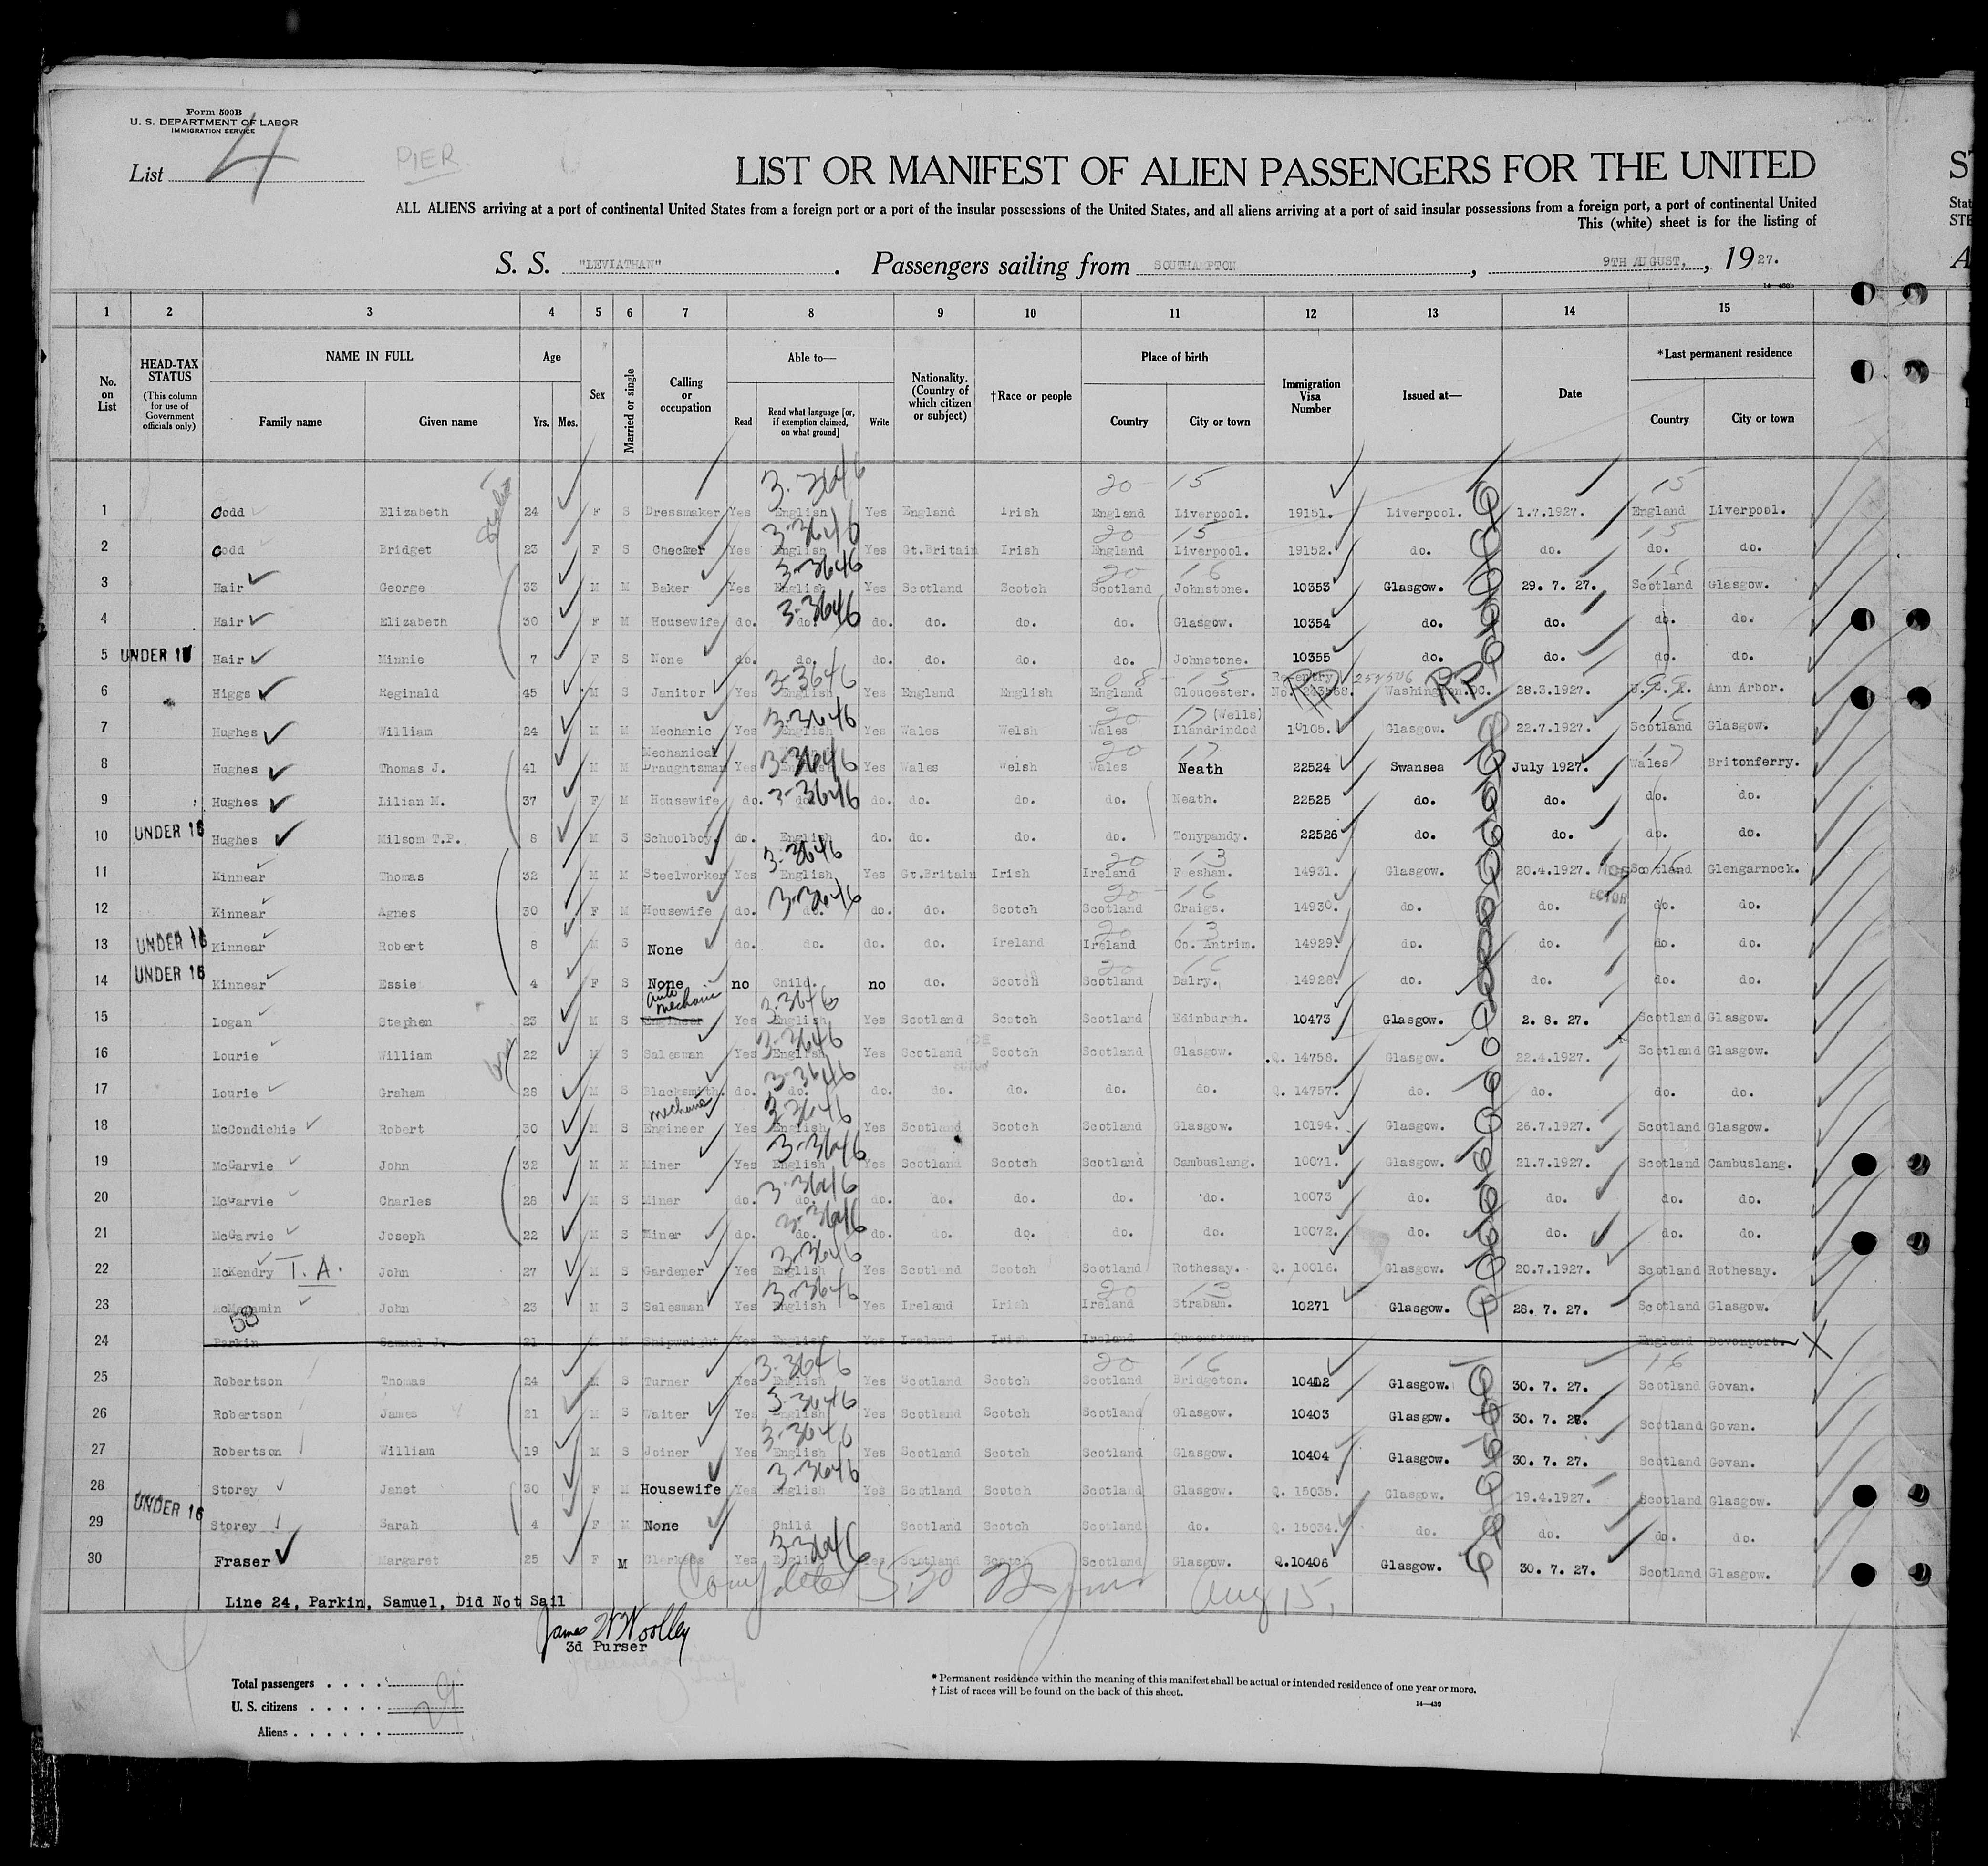 Form 500B
U. S. DEPARTMENT OF LABOR
IMMIGRATION SERVICE
List 4
PIER
LIST OR MANIFEST OF ALIEN PASSENGERS FOR THE UNITED
ALL ALIENS arriving at a port of continental United States from a foreign port or a port of the insular possessions of the United States, and all aliens arriving at a port of said insular possessions from a foreign port, a port of continental United
This (white) sheet is for the listing of
S. S. "LEVIATHAN". Passengers sailing from SOUTHAMPTON, 9TH AUGUST, 1927.
1 2 3 4 5 6 7 8 9 10 11 12 13 14 15
No. on List HEAD-TAX STATUS (This column for use of Government officials only) NAME IN FULL Family name Given name Age Yrs. Mos. Sex Married or single Calling or occupation Able to— Read Read what language [or, if exemption claimed, on what ground] Write Nationality. (Country of which citizen or subject) †Race or people Place of birth Country City or town Immigration Visa Number Issued at— Date *Last permanent residence Country City or town
1 Codd Elizabeth 24 F S Dressmaker Yes English Yes England Irish England Liverpool. 19151. Liverpool. 1.7.1927. England Liverpool.
2 Codd Bridget 23 F S Checker Yes English Yes Gt.Britain Irish England Liverpool. 19152. do. do. do. do.
3 Hair George 33 M M Baker Yes English Yes Scotland Scotch Scotland Johnstone. 10353 Glasgow. 29. 7. 27. Scotland Glasgow.
4 Hair Elizabeth 30 F M Housewife do. do. do. do. do. do. Glasgow. 10354 do. do. do. do.
5 UNDER 16 Hair Minnie 7 F S None do. do. do. do. do. do. Johnstone. 10355 do. do. do. do.
6 Higgs Reginald 45 M S Janitor Yes English Yes England English England Gloucester. Re-entry No. Washington.DC. 28.3.1927. U.S.A. Ann Arbor.
7 Hughes William 24 M M Mechanic Yes English Yes Wales Welsh Wales Llandrindod (Wells) 10105. Glasgow. 22.7.1927. Scotland Glasgow.
8 Hughes Thomas J. 41 M M Mechanical Draughtsman Yes English Yes Wales Welsh Wales Neath 22524 Swansea July 1927. Wales Britonferry.
9 Hughes Lilian M. 37 F M Housewife do. do. do. do. do. do. Neath. 22525 do. do. do. do.
10 UNDER 16 Hughes Milsom T.P. 8 M S Schoolboy do. English do. do. do. do. Tonypandy. 22526 do. do. do. do.
11 Kinnear Thomas 32 M M Steelworker Yes English Yes Gt.Britain Irish Ireland 14931. Glasgow. 20.4.1927. Scotland Glengarnock.
12 Kinnear Agnes 30 F M Housewife do. do. do. do. Scotch Scotland Craigs. 14930. do. do. do. do.
13 UNDER 16 Kinnear Robert 8 M S None do. do. do. do. Ireland Ireland Co. Antrim. 14929. do. do. do. do.
14 UNDER 16 Kinnear Essie 4 F S None no Child. no do. Scotch Scotland Dalry. 14928. do. do. do. do.
15 Logan Stephen 23 M S Engineer Auto Mechanic Yes English Yes Scotland Scotch Scotland Edinburgh. 10473 Glasgow. 2. 8. 27. Scotland Glasgow.
16 Lourie William 22 M S Salesman Yes English Yes Scotland Scotch Scotland Glasgow. Q. 14758. Glasgow. 22.4.1927. Scotland Glasgow.
17 Lourie Graham 28 M S Blacksmith. do. do. do. do. do. do. do. Q. 14757. do. do. do. do.
18 McCondichie Robert 30 M S Engineer mechanic Yes English Yes Scotland Scotch Scotland Glasgow. 10194. Glasgow. 26.7.1927. Scotland Glasgow.
19 McGarvie John 32 M M Miner Yes English Yes Scotland Scotch Scotland Cambuslang. 10071. Glasgow. 21.7.1927. Scotland Cambuslang.
20 McGarvie Charles 28 M S Miner do. do. do. do. do. do. do. 10073 do. do. do. do.
21 McGarvie Joseph 22 M S Miner do. do. do. do. do. do. do. 10072. do. do. do. do.
22 McKendry T. A. John 27 M S Gardener Yes English Yes Scotland Scotch Scotland Rothesay. Q. 10016. Glasgow. 20.7.1927. Scotland Rothesay.
23 McMenamin John 23 M S Salesman Yes English Yes Ireland Irish Ireland Strabam. 10271 Glasgow. 28. 7. 27. Scotland Glasgow.
24 Parkin Samuel J. 21 M M Shipwright Yes English Yes Ireland Irish Ireland Queenstown. England Devonport. X
25 Robertson Thomas 24 M S Turner Yes English Yes Scotland Scotch Scotland Bridgeton. 10402 Glasgow. 30. 7. 27. Scotland Govan.
26 Robertson James 21 M S Waiter Yes English Yes Scotland Scotch Scotland Glasgow. 10403 Glasgow. 30. 7. 27. Scotland Govan.
27 Robertson William 19 M S Joiner Yes English Yes Scotland Scotch Scotland Glasgow. 10404 Glasgow. 30. 7. 27. Scotland Govan.
28 Storey Janet 30 F M Housewife Yes English Yes Scotland Scotch Scotland Glasgow. Q. 15035. Glasgow. 19.4.1927. Scotland Glasgow.
29 UNDER 16 Storey Sarah 4 F M None Child Scotland Scotch Scotland do. Q. 15034. do. do. do. do.
30 Fraser Margaret 25 F M Clerkess Yes English Yes Scotland Scotch Scotland Glasgow. Q.10406 Glasgow. 30. 7. 27. Scotland Glasgow.
Completed 5:30 Aug 15,
Line 24, Parkin, Samuel, Did Not Sail
James W Woolley
3d Purser
Total passengers
U. S. citizens
Aliens
29
* Permanent residence within the meaning of this manifest shall be actual or intended residence of one year or more.
† List of races will be found on the back of this sheet.
14—430